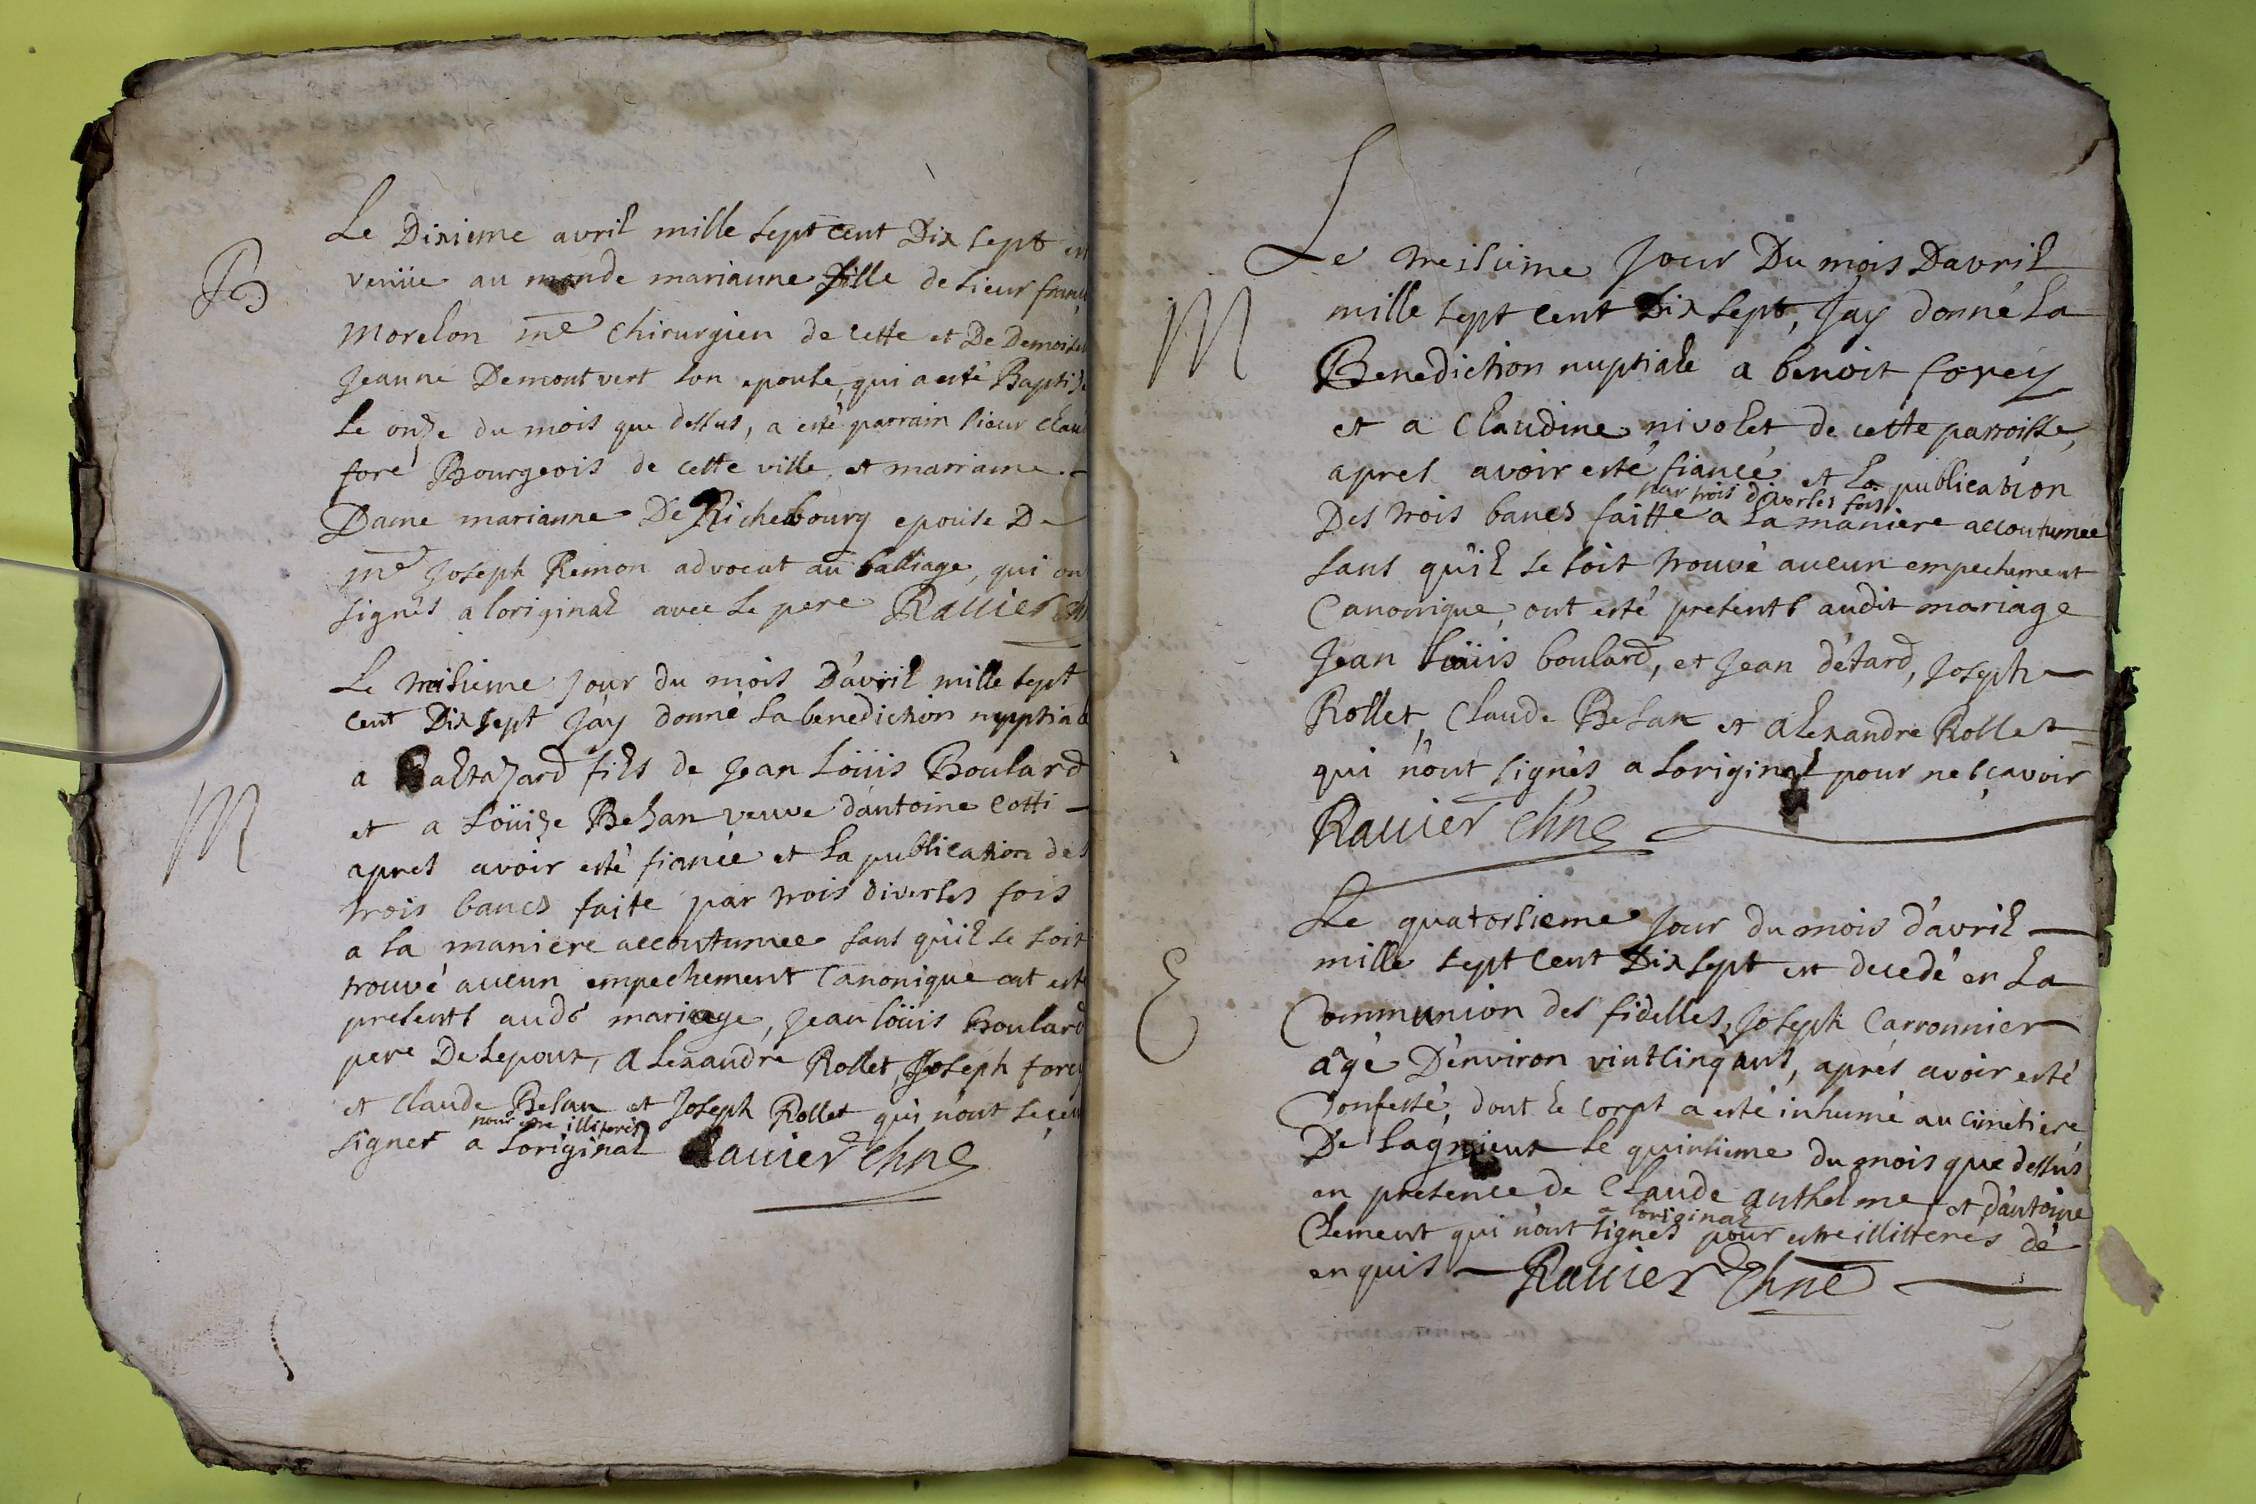 B
Le Dixieme avril mille sept cent Dix sept
venüe au monde marianne fille de sieur franç
morelon me chirurgien de cette et De Demoisel
Jeanne Demontvert son epouse, qui a esté Baptisé
le onze du mois que dessus, a esté parrain sieur clau
foré Bourgeois de cette ville, et marraine
Dame marianne De Richebourg epouse De
me Joseph Remon advocat au balliage, qui on
signés a loriginal avec le pere Rauier
M
Le treisieme jour du mois D'avril mille sept
cent Dix sept Jay donné la benediction nuptiale
a Baltazard fils de Jean Loüis Boulard
et a Loüize Besan veuve d'antoine Cotti
apres avoir esté fiancé et la publication des
trois bancs faite par trois diverses fois
a la maniere accoutumee sans qu'il se soit
trouvé aucun empechement Canonique ont esté
presents aud. mariage, Jean loüis Boulard
pere De lepoux, Alexandre Rollet, Joseph forey
et Claude Besan et Joseph Rollet qui n'ont sceu
pour etre illiterés
signer a loriginal Rauier chne
Le treisieme Jour Du mois Davril
M
mille sept cent Dix sept, Jay donné la
Benediction nuptiale a benoit forey
et a Claudine nivolet de cette parroisse,
apres avoir esté fiancé et la publication
par trois diverses fois
Des trois bancs faitte a la maniere accoutumee
sans qu'il se soit trouvé aucun empechement
Canonique, ont esté presents audit mariage
Jean loüis boulard, et Jean détard, Joseph
Rollet, Claude Besan et Alexandre Rollet
qui n'ont signés a loriginal pour ne sçavoir
Rauier chne
Le quatorsieme Jour du mois d'avril
mille sept cent Dix sept est decedé en la
E
Communion des fidelles, Joseph Carronnier
âgé D'environ vintcinq ans, aprés avoir esté
Confessé, dont le corps a esté inhumé au cimetiere
De lagnieux le quinsieme du mois que dessus
en presence de Claude anthelme, et d'antoine
a loriginal
Clement qui n'ont signés pour estre illitteres de
enquis Rauier chne